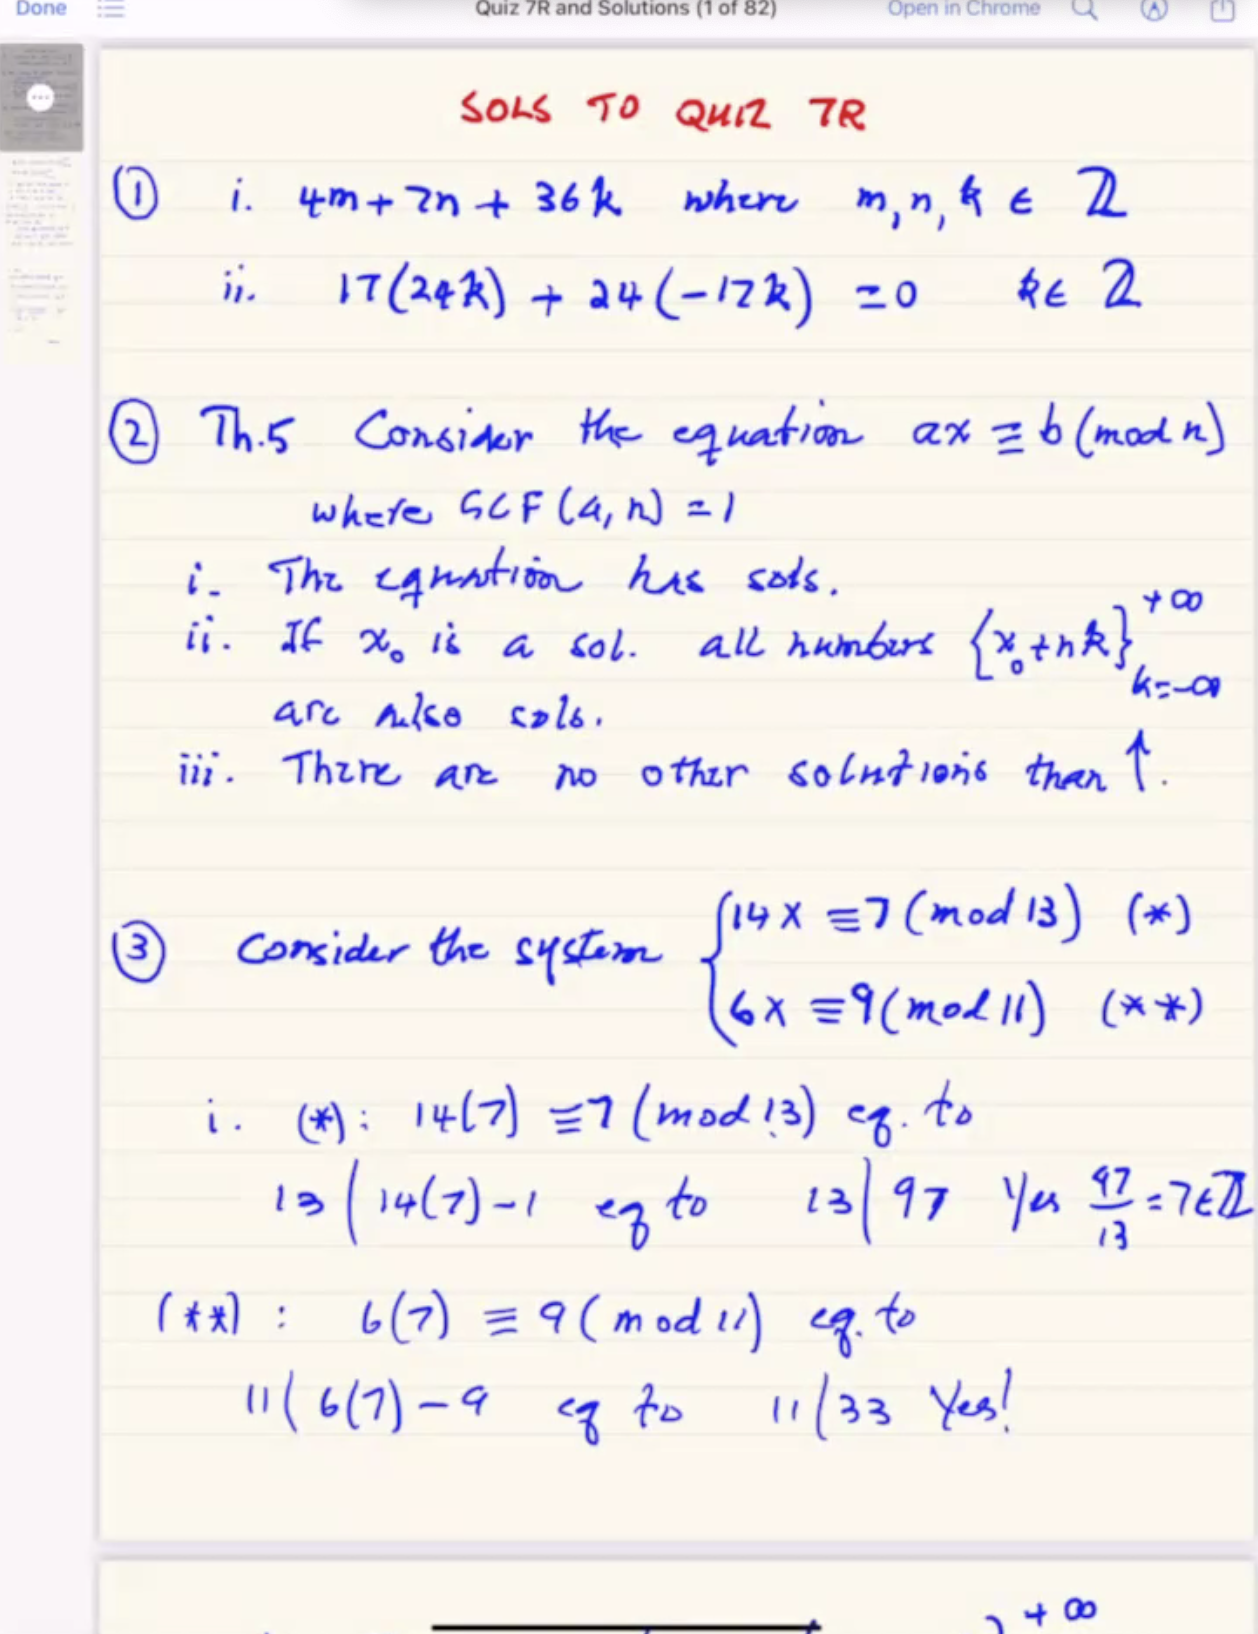 Done
Quiz 7R and Solutions (1 of 82)
Open in Chrome
SOLS TO QUIZ 7R
① i. 4m + 7n + 36k where m, n, k ∈ ℤ
ii. 17(24k) + 24(-17k) = 0 k ∈ ℤ
② Th.5 Consider the equation ax ≡ b (mod n)
where GCF (a, n) = 1
i. The equation has sols.
ii. If x₀ is a sol. all numbers {x₀ + nk}
+∞
k=-∞
are also sols.
iii. There are no other solutions than ↑.
③ Consider the system { 14x ≡ 7 (mod 13) (*)
6x ≡ 9 (mod 11) (**)
i. (*): 14(7) ≡ 7 (mod 13) eq. to
13 | 14(7) - 1 eq to 13 | 97 Yes 97/13 = 7 ∈ ℤ
(**) : 6(7) ≡ 9 (mod 11) eq. to
11 | 6(7) - 9 eq to 11 | 33 Yes!
+∞